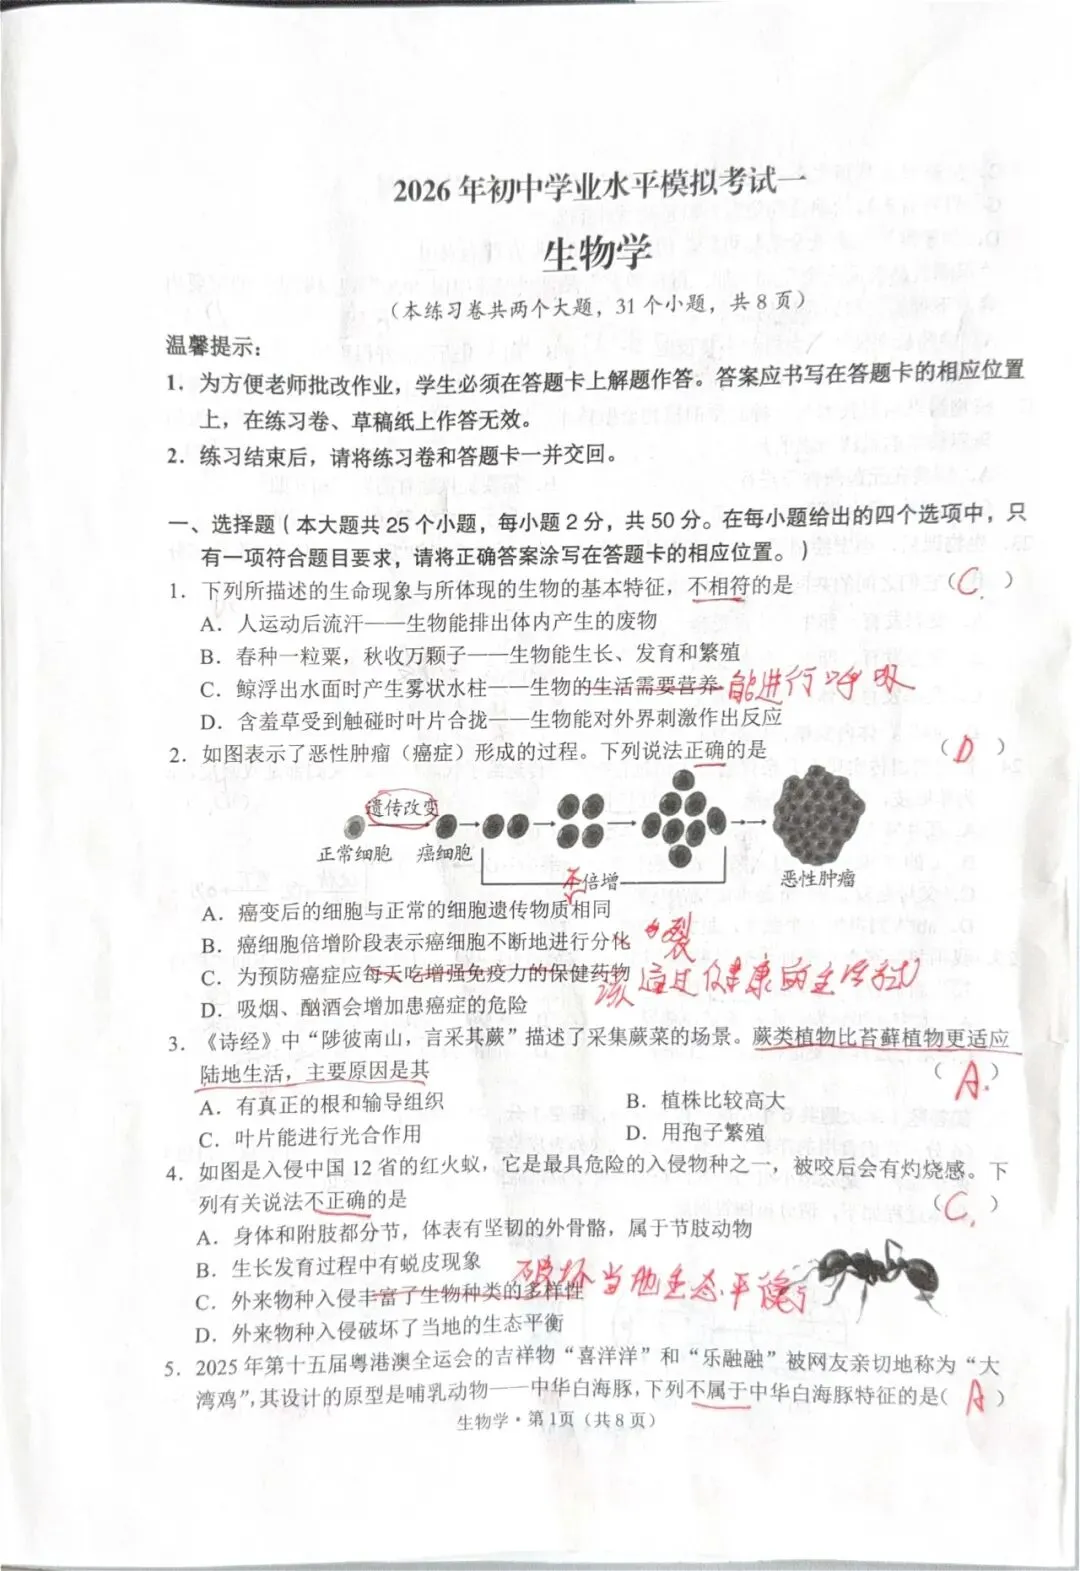 2026年初中学业水平模拟考试一
生物学
（本练习卷共两个大题，31个小题，共8页）
温馨提示：
1．为方便老师批改作业，学生必须在答题卡上解题作答。答案应书写在答题卡的相应位置
上，在练习卷、草稿纸上作答无效。
2．练习结束后，请将练习卷和答题卡一并交回。
一、选择题（本大题共25个小题，每小题2分，共50分。在每小题给出的四个选项中，只
有一项符合题目要求，请将正确答案涂写在答题卡的相应位置。）
1．下列所描述的生命现象与所体现的生物的基本特征，不相符的是（C．）
A．人运动后流汗——生物能排出体内产生的废物
B．春种一粒粟，秋收万颗子——生物能生长、发育和繁殖
C．鲸浮出水面时产生雾状水柱——生物的生活需要营养 能进行呼吸
D．含羞草受到触碰时叶片合拢——生物能对外界刺激作出反应
2．如图表示了恶性肿瘤（癌症）形成的过程。下列说法正确的是（D）
遗传改变
正常细胞 癌细胞 倍增 恶性肿瘤
不
A．癌变后的细胞与正常的细胞遗传物质相同
B．癌细胞倍增阶段表示癌细胞不断地进行分化 分裂
C．为预防癌症应每天吃增强免疫力的保健药物 该通过健康的生活方式
D．吸烟、酗酒会增加患癌症的危险
3．《诗经》中“陟彼南山，言采其蕨”描述了采集蕨菜的场景。蕨类植物比苔藓植物更适应
陆地生活，主要原因是其（A．）
A．有真正的根和输导组织 B．植株比较高大
C．叶片能进行光合作用 D．用孢子繁殖
4．如图是入侵中国12省的红火蚁，它是最具危险的入侵物种之一，被咬后会有灼烧感。下
列有关说法不正确的是（C．）
A．身体和附肢都分节，体表有坚韧的外骨骼，属于节肢动物
B．生长发育过程中有蜕皮现象
C．外来物种入侵丰富了生物种类的多样性 破坏当地生态平衡
D．外来物种入侵破坏了当地的生态平衡
5．2025年第十五届粤港澳全运会的吉祥物“喜洋洋”和“乐融融”被网友亲切地称为“大
湾鸡”，其设计的原型是哺乳动物——中华白海豚，下列不属于中华白海豚特征的是（A）
生物学·第1页（共8页）